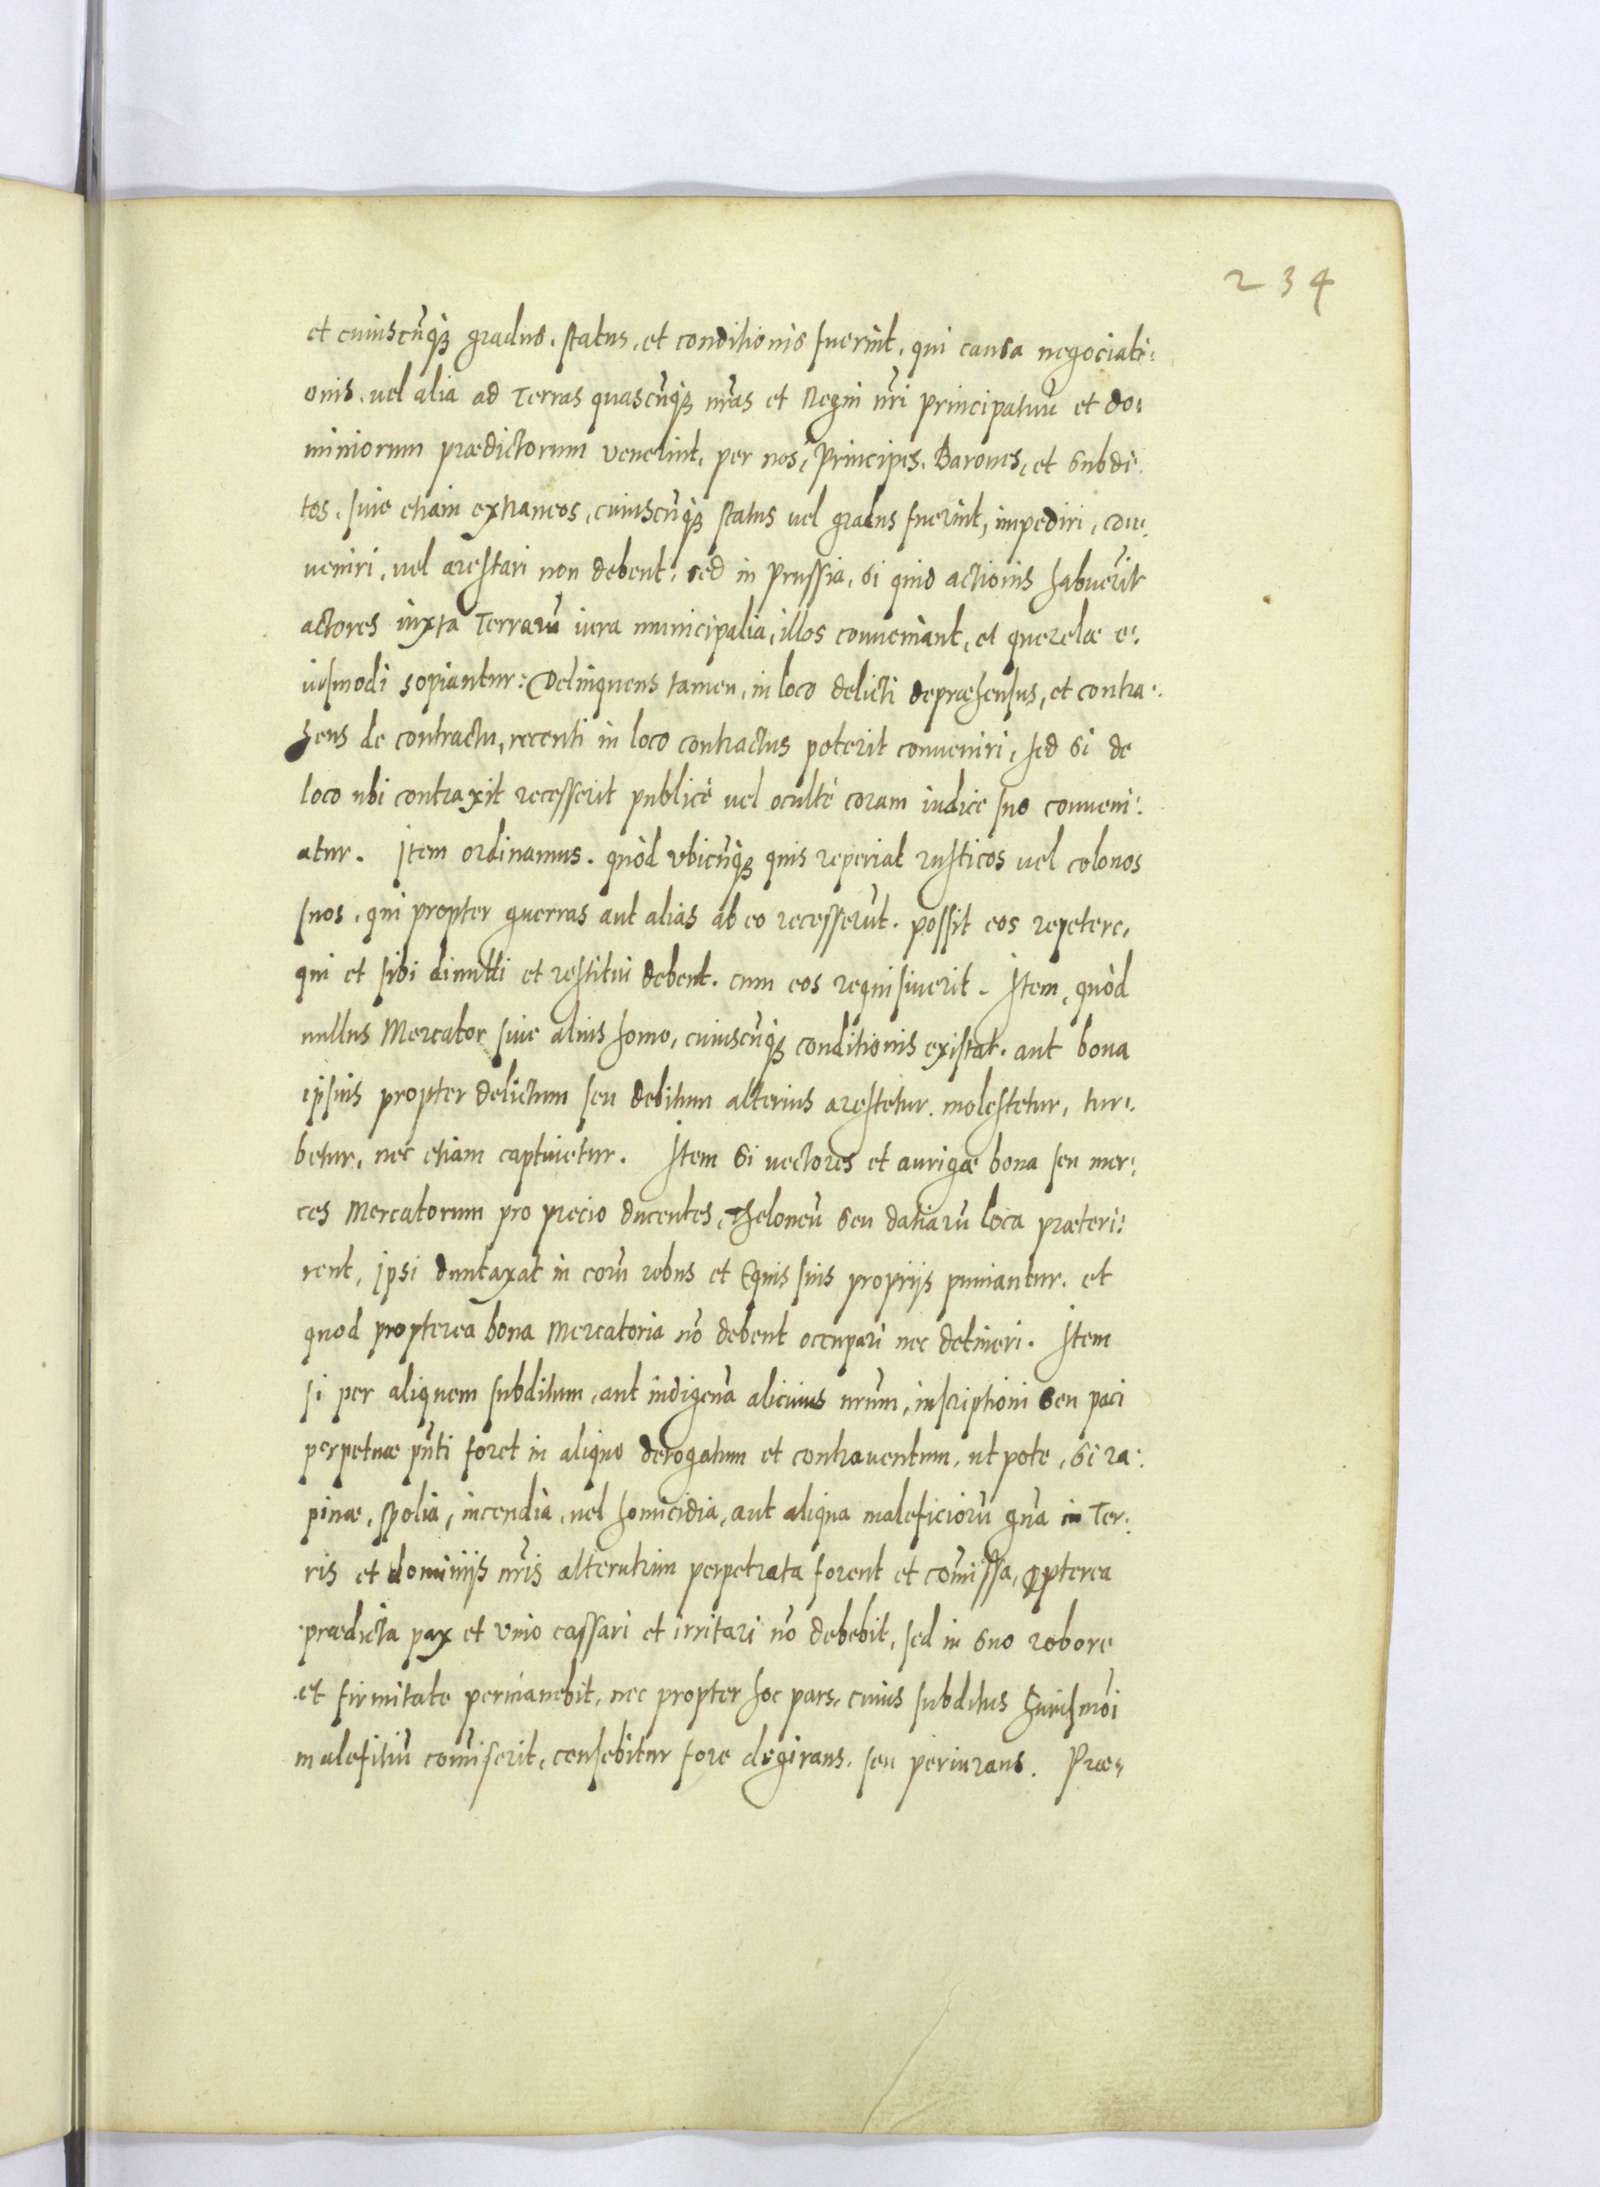 234
et cuiuscūqꝫ gradus, status, et conditionis fuerint, qui causa negociati:
onis, uel alia ad Terras quascūqꝫ nr̄as et Regni nr̄i principatuū et do:
miniorum prædictorum venerint, per nos, Principes, Barones, et subdi:
tos, siue etiam extraneos, cuiuscūqꝫ status uel gradus fuerint, impediri, con:
ueniri, uel arestari non debent: sed in Prussia, si quid actionis habuerīt
actores iuxta Terrarū iura municipalia, illos conueniant, et querelæ e:
iusmodi sopiantur: Delinquens tamen, in loco delicti depræhensus, et contra:
hens de contractu, recenti in loco contractus poterit conueniri, sed si de
loco ubi contraxit recesserit publicè uel ocultè coram iudice suo conueni:
atur. Item ordinamus. quòd vbicūqꝫ quis reperiat rusticos uel colonos
suos, qui propter guerras aut alias ab eo recesserūt. possit eos repetere,
qui et sibi dimitti et restitui debent. cum eos requisiuerit. Item, quòd
nullus Mercator siue alius homo, cuiuscūqꝫ conditionis existat. aut bona
ipsius propter delictum seu debitum alterius arestetur. molestetur, tur:
betur, nec etiam captiuetur. Item si uectores et aurigæ bona seu mer:
ces Mercatorum pro precio ducentes, Theloneū seu datiarū loca præteri:
rent, ipsi duntaxat in eorū rebus et Equis suis proprijs puniantur. et
quod propterea bona Mercatoria nō debent occupari nec detineri. Item
si per aliquem subditum, aut indigenā alicuius nr̄um, inscriptioni seu paci
perpetuæ pn̄ti foret in aliquo derogatum et contrauentum, ut pote, si ra:
pinæ, spolia, incendia, uel homicidia, aut aliqua maleficiorū gn̄a in Ter:
ris et dominijs nr̄is alterutrim perpetrata forent et com̄issa, ꝓpterea
prædicta pax et vnio cassari et irritari nō debebit, sed in suo robore
et firmitate permanebit, nec propter hoc pars, cuius subditus huiusmōi
malefitiū com̄iserit, censebitur fore degirans, seu periurans. Præ: